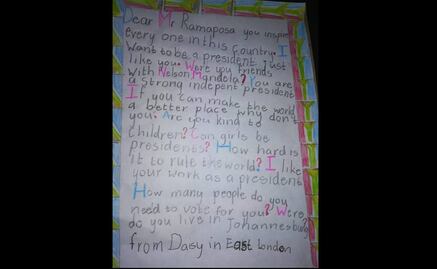 Dear Mr Ramaposa you inspire
every one in this country. I
Want to be a president just
like you. Were you friends
with Nelson Mandela? You are
a strong indepent president
If, you can make the world
a better place why don't
you. Are you kind to
children? Can girls be
presidents? How hard is
it to rule the world? I like
your work as a president
How many people do you
need to vote for you? Were
do you live in Johannesburg?
from Daisy in East London